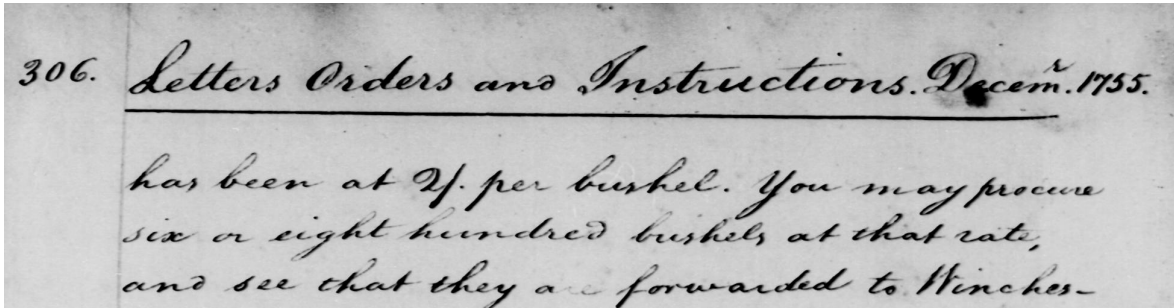 306. Letters Orders and Instructions. Decemr. 1755.
has been at 2/. per bushel. You may procure
six or eight hundred bushels at that rate,
and see that they are forwarded to Winches-